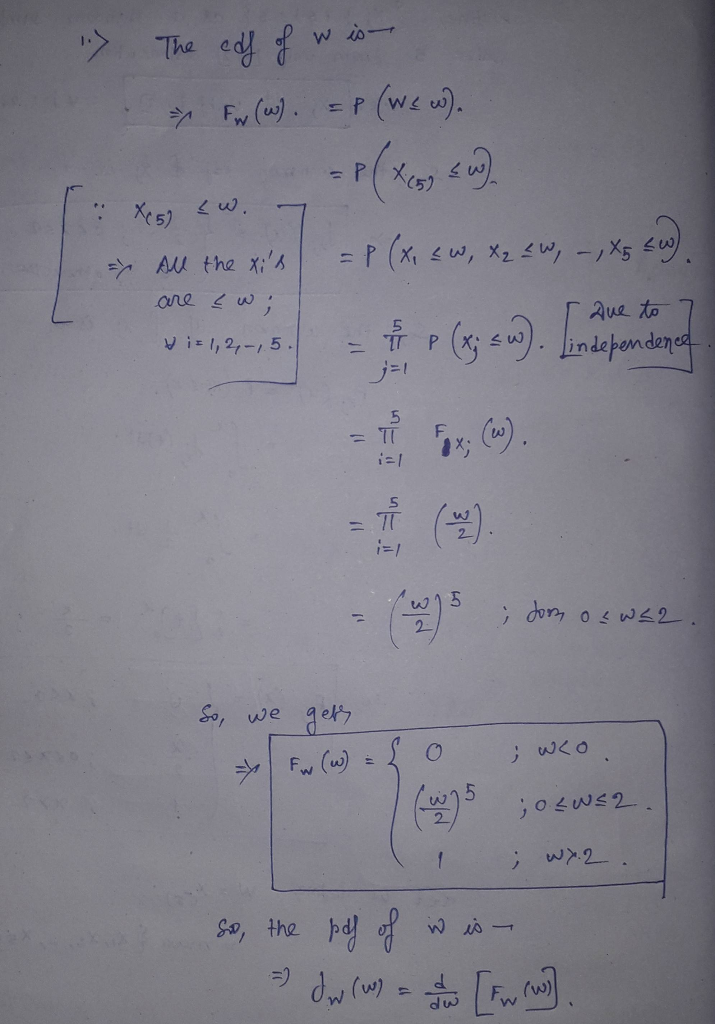 1.) The cdf of W is —
⇒ F_W (w). = P (W ≤ w).
= P ( X_(5) ≤ w).
[ ∵ X_(5) ≤ w.
⇒ All the Xi's
are ≤ w ;
∀ i = 1, 2, -, 5. ]
= P (X₁ ≤ w, X₂ ≤ w, -, X₅ ≤ w).
= ∏_{j=1}^{5} P (X_j ≤ w). [Due to independence]
= ∏_{i=1}^{5} F_{X_i} (w).
= ∏_{i=1}^{5} (w/2).
= (w/2)^5 ; for 0 ≤ w ≤ 2.
So, we get,
⇒ F_W (w) = { 0 ; w < 0.
(w/2)^5 ; 0 ≤ w ≤ 2.
1 ; w > 2.
So, the pdf of W is —
⇒ f_W (w) = d/dw [F_W (w)].